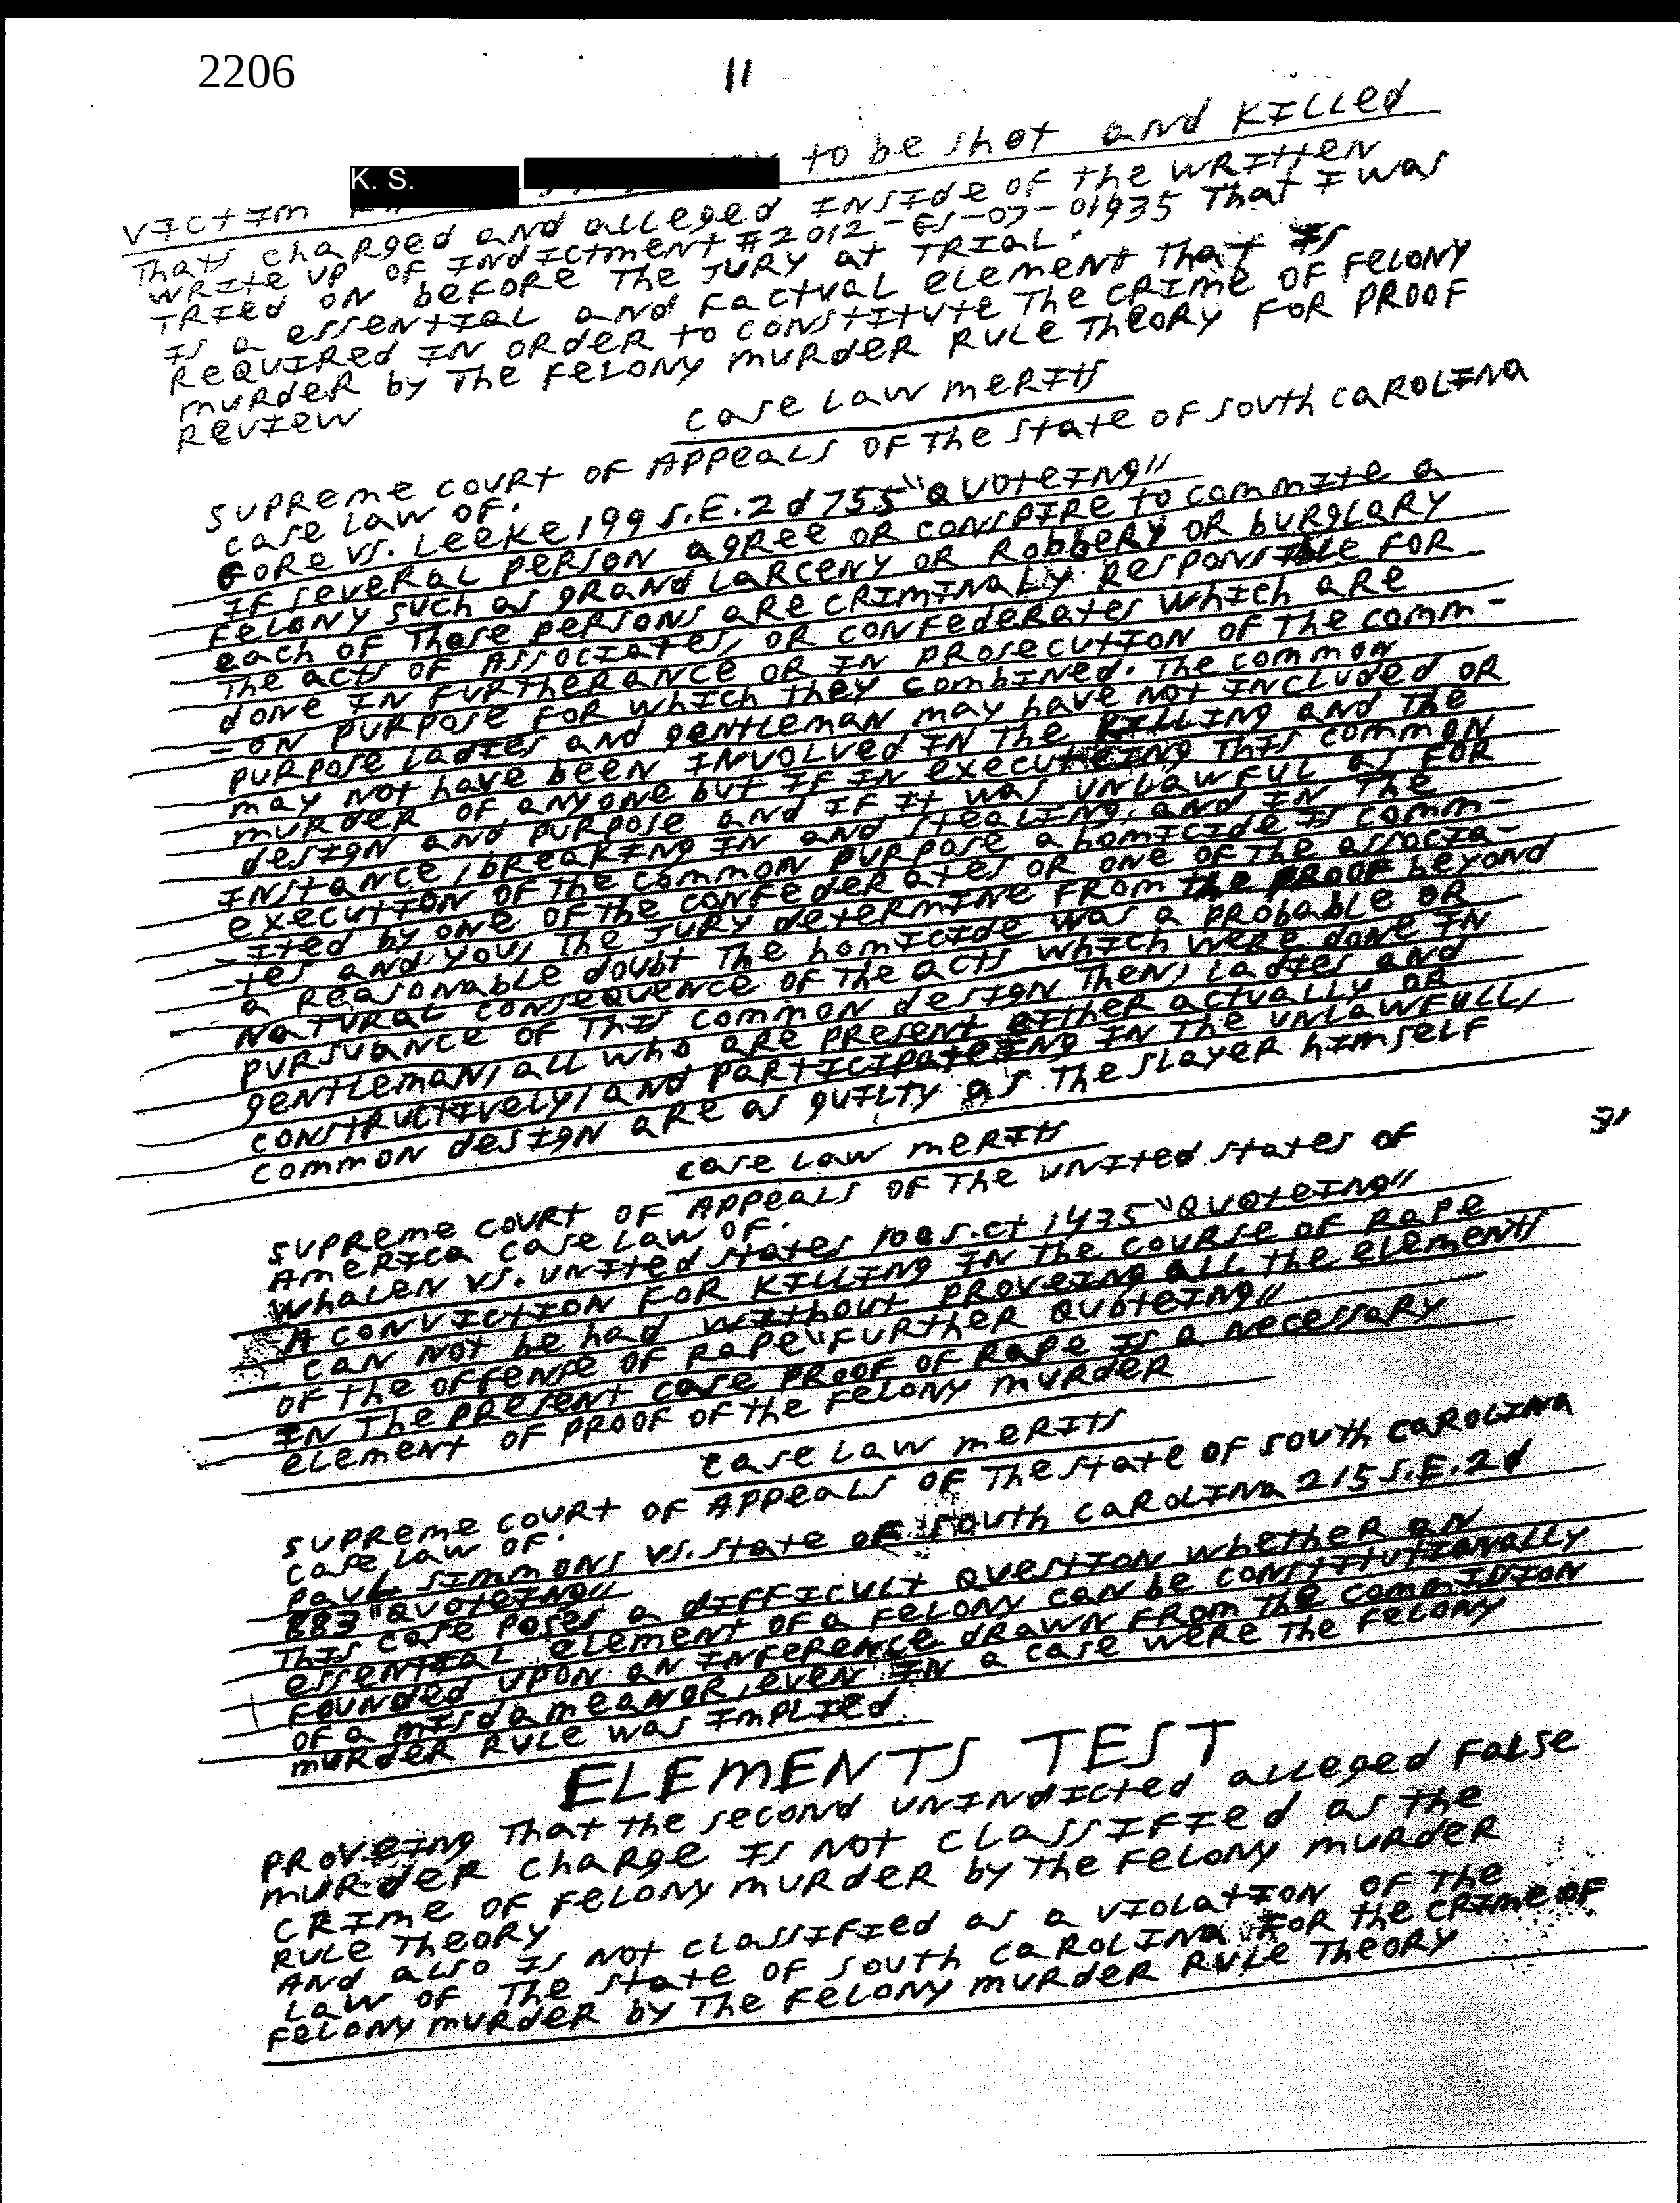 2206
11
VICTIM K. S. to be shot and KILLED
Thats charged and alleged INSIDE OF The WRITTEN
WRITE UP OF INDICTMENT #2012-GS-07-01935 That I was
TRIED ON BEFORE The JURY at TRIAL. Is
Is a essentIAL and Factual element That Is
RequIRED IN ORdeR to CONSTITUTE The CRIME OF FELONY
MURdeR by The Felony MURDER RULE TheoRY FOR PROOF
REVIEW
Case Law MeRITs
SUPREME COURT OF APPEALS OF The State OF SOUTH CAROLINA
Case Law OF.
GORE VS. LEEKE 199 S.E.2d 755 "QUOTEING"
IF seveRAL PERSON agRee OR CONSPIRE to commite a
FELONY such as gRand LaRCENY OR RObbeRY OR buRglaRY
each OF Those PERSONS aRe CRIMINALY RespONSIble FOR
The acts OF Associates, OR CONFEDERATES WhICh aRe
done IN FURTHERANCE OR IN PROSECUTION OF The comm-
-ON PURPOSE FOR WhICh They combined. The common
PURPOSE LadIes and gentleman may have not INCLUded OR
may not have been INVOLVed IN The KILLING and The
MURDER OF anyone but IF IN executeING ThIs common
design and PURPOSE and IF It was UNLAWFUL as FOR
INstance, bReakING IN and stealING, and IN The
executION OF The common PURPOSE a homicide Is comm-
-Ited by one OF The confederates OR one OF The associa-
-tes and you, The JURY determine FROM The PROOF beyond
a Reasonable doubt The homicide was a PRObable OR
NatURal consequence OF The acts WhICh were done IN
PURSUANCE OF ThIs common design Then, Ladies and
gentleman, all who aRe PResent eItheR actually OR
constructively, and PaRtIcIpateING IN The unlawfull,
common design aRe as guilty as The slayeR himself
Case Law MeRITs
SUPREME COURT OF APPEALS OF The United States OF
AmeRIca Case Law OF.
Whalen VS. United States 100 S.Ct 1435 "QUOTEING"
A CONVICTION FOR KILLING IN The COURSE OF RAPE
can not be had without PROVEING all The elements
OF the OFFense OF Rape "FURTHER QUOTEING"
IN The PResent case PROOF OF Rape Is a necessary
element OF PROOF OF The Felony MURDER
Case Law MeRITs
SUPREME COURT OF APPEALS OF The State OF SOUTH CAROLINA
Case Law OF.
Paul SIMMONS VS. State OF SOUTH CAROLINA 215 S.E.2d
883 "QUOTEING"
ThIs case Poses a dIFFIcult question whetheR an
essentIAL element OF a Felony can be constitutionally
Founded UPON an INFERENCE dRawn FROM The commission
OF a misdameanoR, even IN a case were The Felony
MURDER RULE was IMPLIed
ELEMENTS TEST
PROVEING That the second UNINDICTED alleged False
MURdeR ChaRge Is Not CLassIFIed as The
CRIME OF Felony MURDER by The Felony MURDER
RULE TheoRY
And also Is Not CLassIFIed as a VIOLATION OF The
Law OF The State OF SOUTH CAROLINA FOR The CRIME OF
Felony MURDER by The Felony MURDER RULE TheoRY